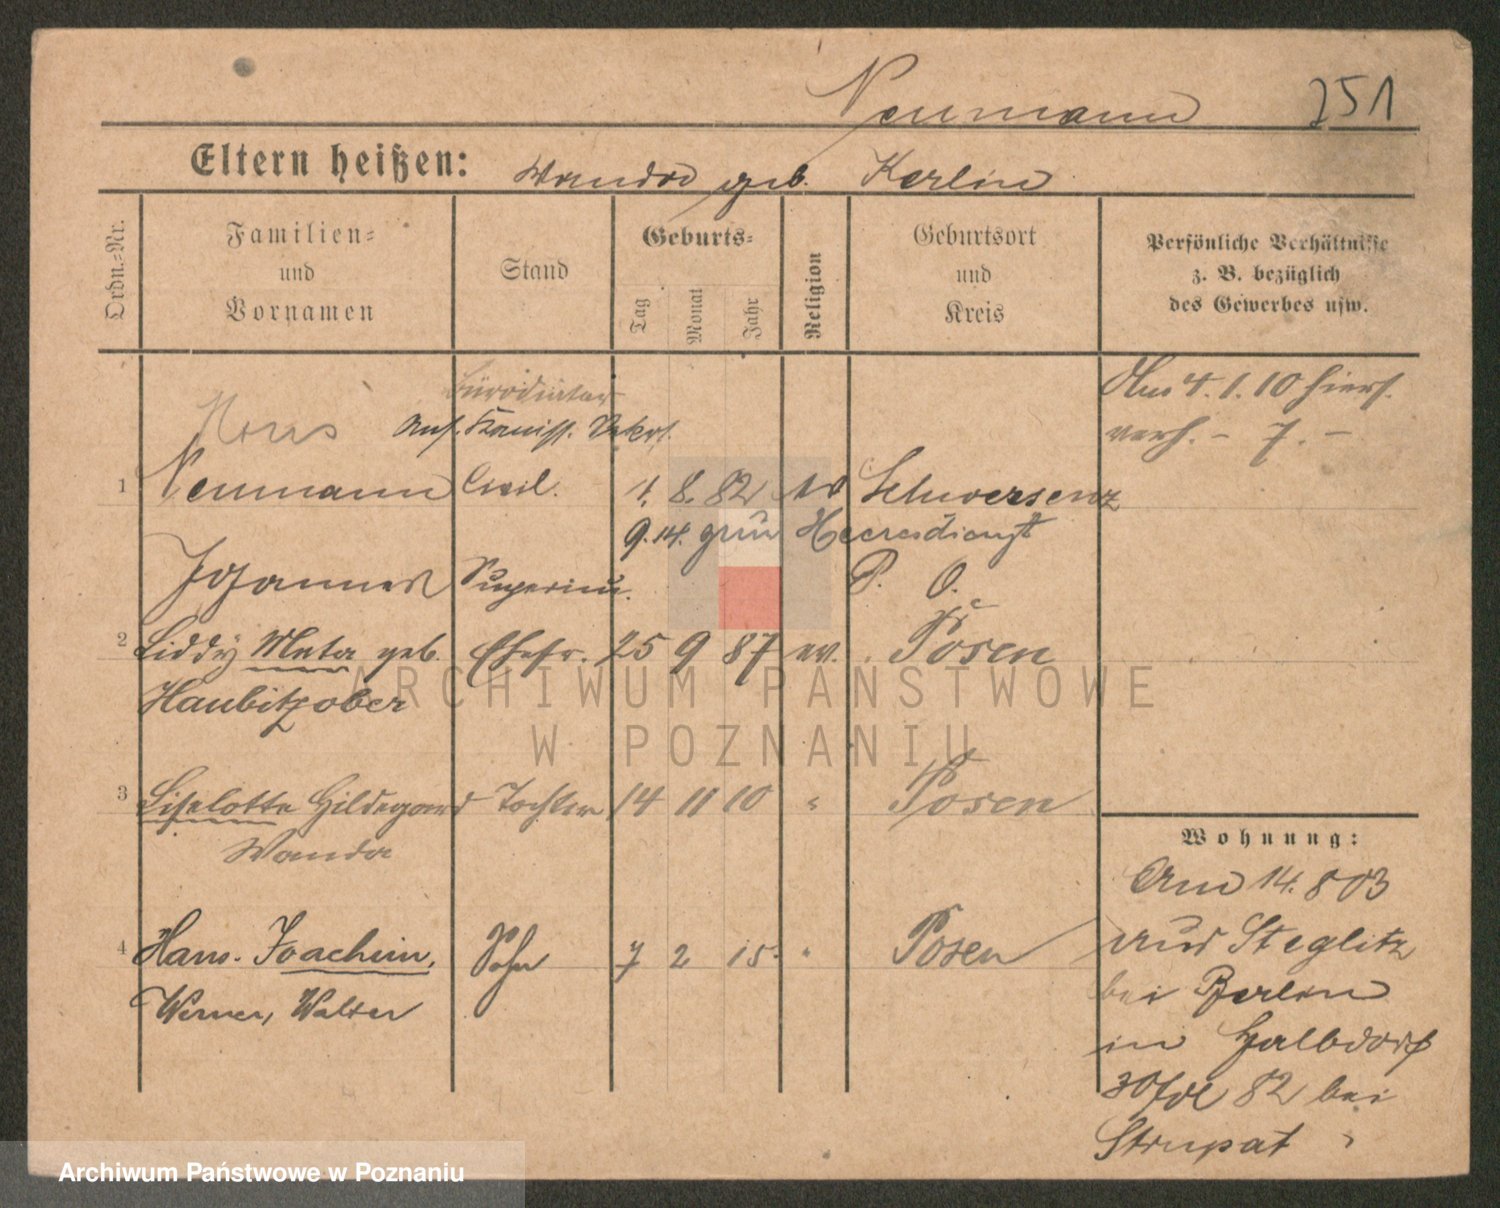 Neumann 251
Eltern heißen: Wanda geb. Kerlin
Ordn.-Nr.
Familien-
und
Vornamen
Stand
Geburts-
Tag
Monat
Jahr
Religion
Geburtsort
und
Kreis
Persönliche Verhältnisse
z. B. bezüglich
des Gewerbes usw.
Am 4.1.10 hiers.
verh. - 7. -
Bürodiätar
1 Neumann Civil. 1. 8. 82 ev Schwersenz
9.14. grün Heeresdienst
Johannes Supernu. P. O.
2 Liddy Meta geb. Ehefr. 25 9 87 ev. Posen
Haubitzober
ARCHIWUM PAŃSTWOWE
W POZNANIU
3 Liselotte Hildegard Tochter 14 11 10 " Posen
Wanda
4 Hans-Joachim, Sohn 7 2 15. " Posen
Werner, Walter
Wohnung:
Am 14.8 03
aus Steglitz
bei Berlin
in Halbdorf
82 bei
Strupat
Archiwum Państwowe w Poznaniu